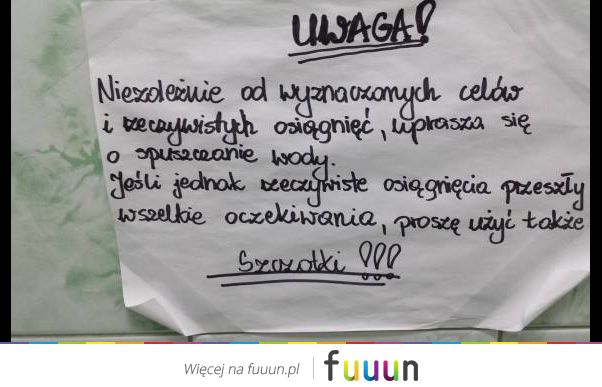 UWAGA!
Niezależnie od wyznaczonych celów
i rzeczywistych osiągnięć, uprasza się
o spuszczanie wody.
Jeśli jednak rzeczywiste osiągnięcia przeszły
wszelkie oczekiwania, proszę użyć także
Szczotki !!!
Więcej na fuuun.pl | fuuun